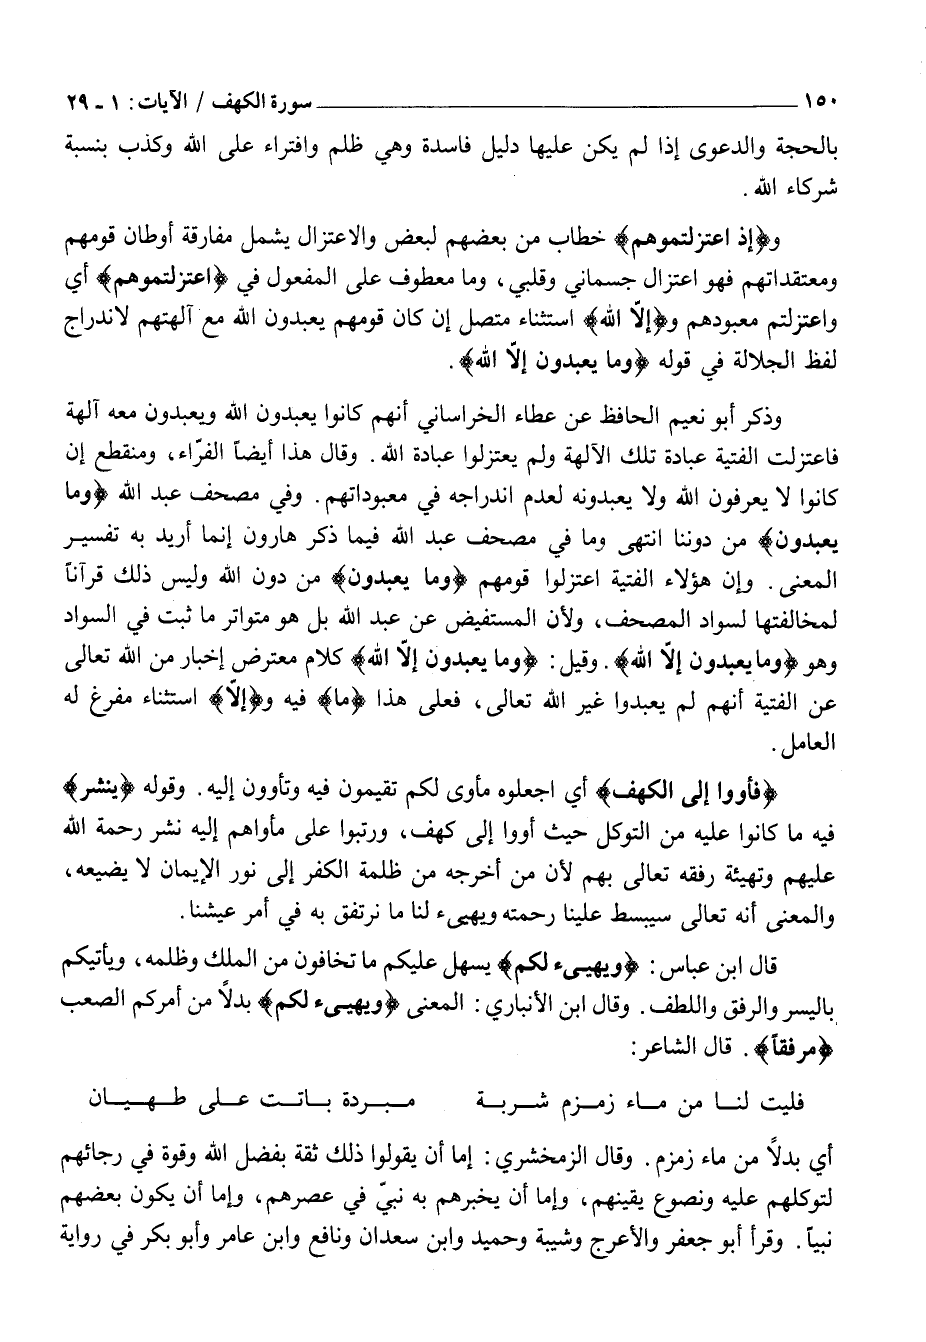 ١٥٠ سورة الكهف / الآيات: ١ - ٢٩
بالحجة والدعوى إذا لم يكن عليها دليل فاسدة وهي ظلم وافتراء على الله وكذب بنسبة
شركاء الله.
و﴿إذ اعتزلتموهم﴾ خطاب من بعضهم لبعض والاعتزال يشمل مفارقة أوطان قومهم
ومعتقداتهم فهو اعتزال جسماني وقلبي، وما معطوف على المفعول في ﴿اعتزلتموهم﴾ أي
واعتزلتم معبودهم و﴿إلّا الله﴾ استثناء متصل إن كان قومهم يعبدون الله مع آلهتهم لاندراج
لفظ الجلالة في قوله ﴿وما يعبدون إلّا الله﴾.
وذكر أبو نعيم الحافظ عن عطاء الخراساني أنهم كانوا يعبدون الله ويعبدون معه آلهة
فاعتزلت الفتية عبادة تلك الآلهة ولم يعتزلوا عبادة الله. وقال هذا أيضاً الفرّاء، ومنقطع إن
كانوا لا يعرفون الله ولا يعبدونه لعدم اندراجه في معبوداتهم. وفي مصحف عبد الله ﴿وما
يعبدون﴾ من دوننا انتهى وما في مصحف عبد الله فيما ذكر هارون إنما أريد به تفسير
المعنى. وإن هؤلاء الفتية اعتزلوا قومهم ﴿وما يعبدون﴾ من دون الله وليس ذلك قرآناً
لمخالفتها لسواد المصحف، ولأن المستفيض عن عبد الله بل هو متواتر ما ثبت في السواد
وهو ﴿وما يعبدون إلّا الله﴾. وقيل: ﴿وما يعبدون إلّا الله﴾ كلام معترض إخبار من الله تعالى
عن الفتية أنهم لم يعبدوا غير الله تعالى، فعلى هذا ﴿ما﴾ فيه و﴿إلّا﴾ استثناء مفرغ له
العامل.
﴿فأووا إلى الكهف﴾ أي اجعلوه مأوى لكم تقيمون فيه وتأوون إليه. وقوله ﴿ينشر﴾
فيه ما كانوا عليه من التوكل حيث أووا إلى كهف، ورتبوا على مأواهم إليه نشر رحمة الله
عليهم وتهيئة رفقه تعالى بهم لأن من أخرجه من ظلمة الكفر إلى نور الإيمان لا يضيعه،
والمعنى أنه تعالى سيبسط علينا رحمته ويهيىء لنا ما نرتفق به في أمر عيشنا.
قال ابن عباس: ﴿ويهيىء لكم﴾ يسهل عليكم ما تخافون من الملك وظلمه، ويأتيكم
باليسر والرفق واللطف. وقال ابن الأنباري: المعنى ﴿ويهيىء لكم﴾ بدلاً من أمركم الصعب
﴿مرفقاً﴾. قال الشاعر:
فليت لنا من ماء زمزم شربة مبردة باتت على طهيان
أي بدلاً من ماء زمزم. وقال الزمخشري: إما أن يقولوا ذلك ثقة بفضل الله وقوة في رجائهم
لتوكلهم عليه ونصوع يقينهم، وإما أن يخبرهم به نبيّ في عصرهم، وإما أن يكون بعضهم
نبياً. وقرأ أبو جعفر والأعرج وشيبة وحميد وابن سعدان ونافع وابن عامر وأبو بكر في رواية